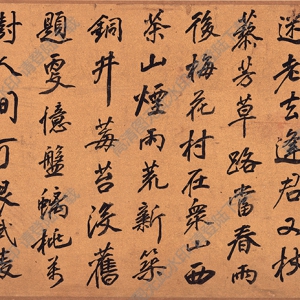 迷老去逢君又杖
藜芳草路當春雨
後梅花村在衆山西
茶山煙雨荒新築
銅井莓苔沒舊
題更憶盤螭桃萬
人間武陵